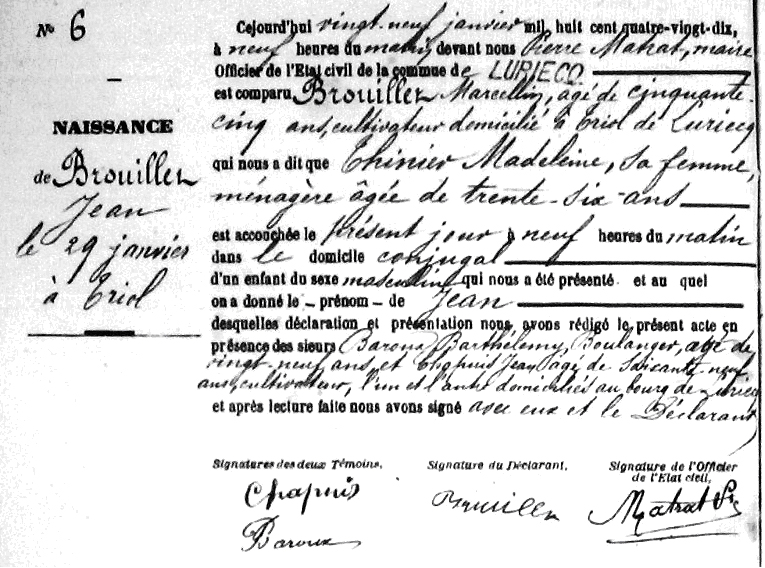 N° 6
NAISSANCE
de Brouillet
Jean
le 29 janvier
à Triol
Cejourd'hui vingt-neuf janvier mil, huit cent quatre-vingt-dix,
à neuf heures du matin, devant nous Pierre Matrat, maire
Officier de l'Etat civil de la commune de LURIECQ
est comparu Brouillet Marcellin, agé de cinquante-
cinq ans, cultivateur domicilié à Triol de Luriecq
qui nous a dit que Thinier Madeleine, sa femme,
ménagère âgée de trente-six-ans
est accouchée le présent jour à neuf heures du matin
dans le domicile conjugal
d'un enfant du sexe masculin qui nous a été présenté et au quel
on a donné le - prénom - de Jean
desquelles déclaration et présentation nous avons rédigé le présent acte en
présence des sieurs Baroux Barthélemy, Boulanger, agé de
vingt-neuf ans, et Chapuis Jean agé de soixante-neuf
ans, cultivateur, l'un et l'autre domiciliés au bourg de Luriecq
et après lecture faite nous avons signé avec eux et le Déclarant
Signatures des deux Témoins,
Signature du Déclarant,
Signature de l'Officier
de l'Etat civil,
Chapuis
Baroux
Brouillet
Matrat Pre